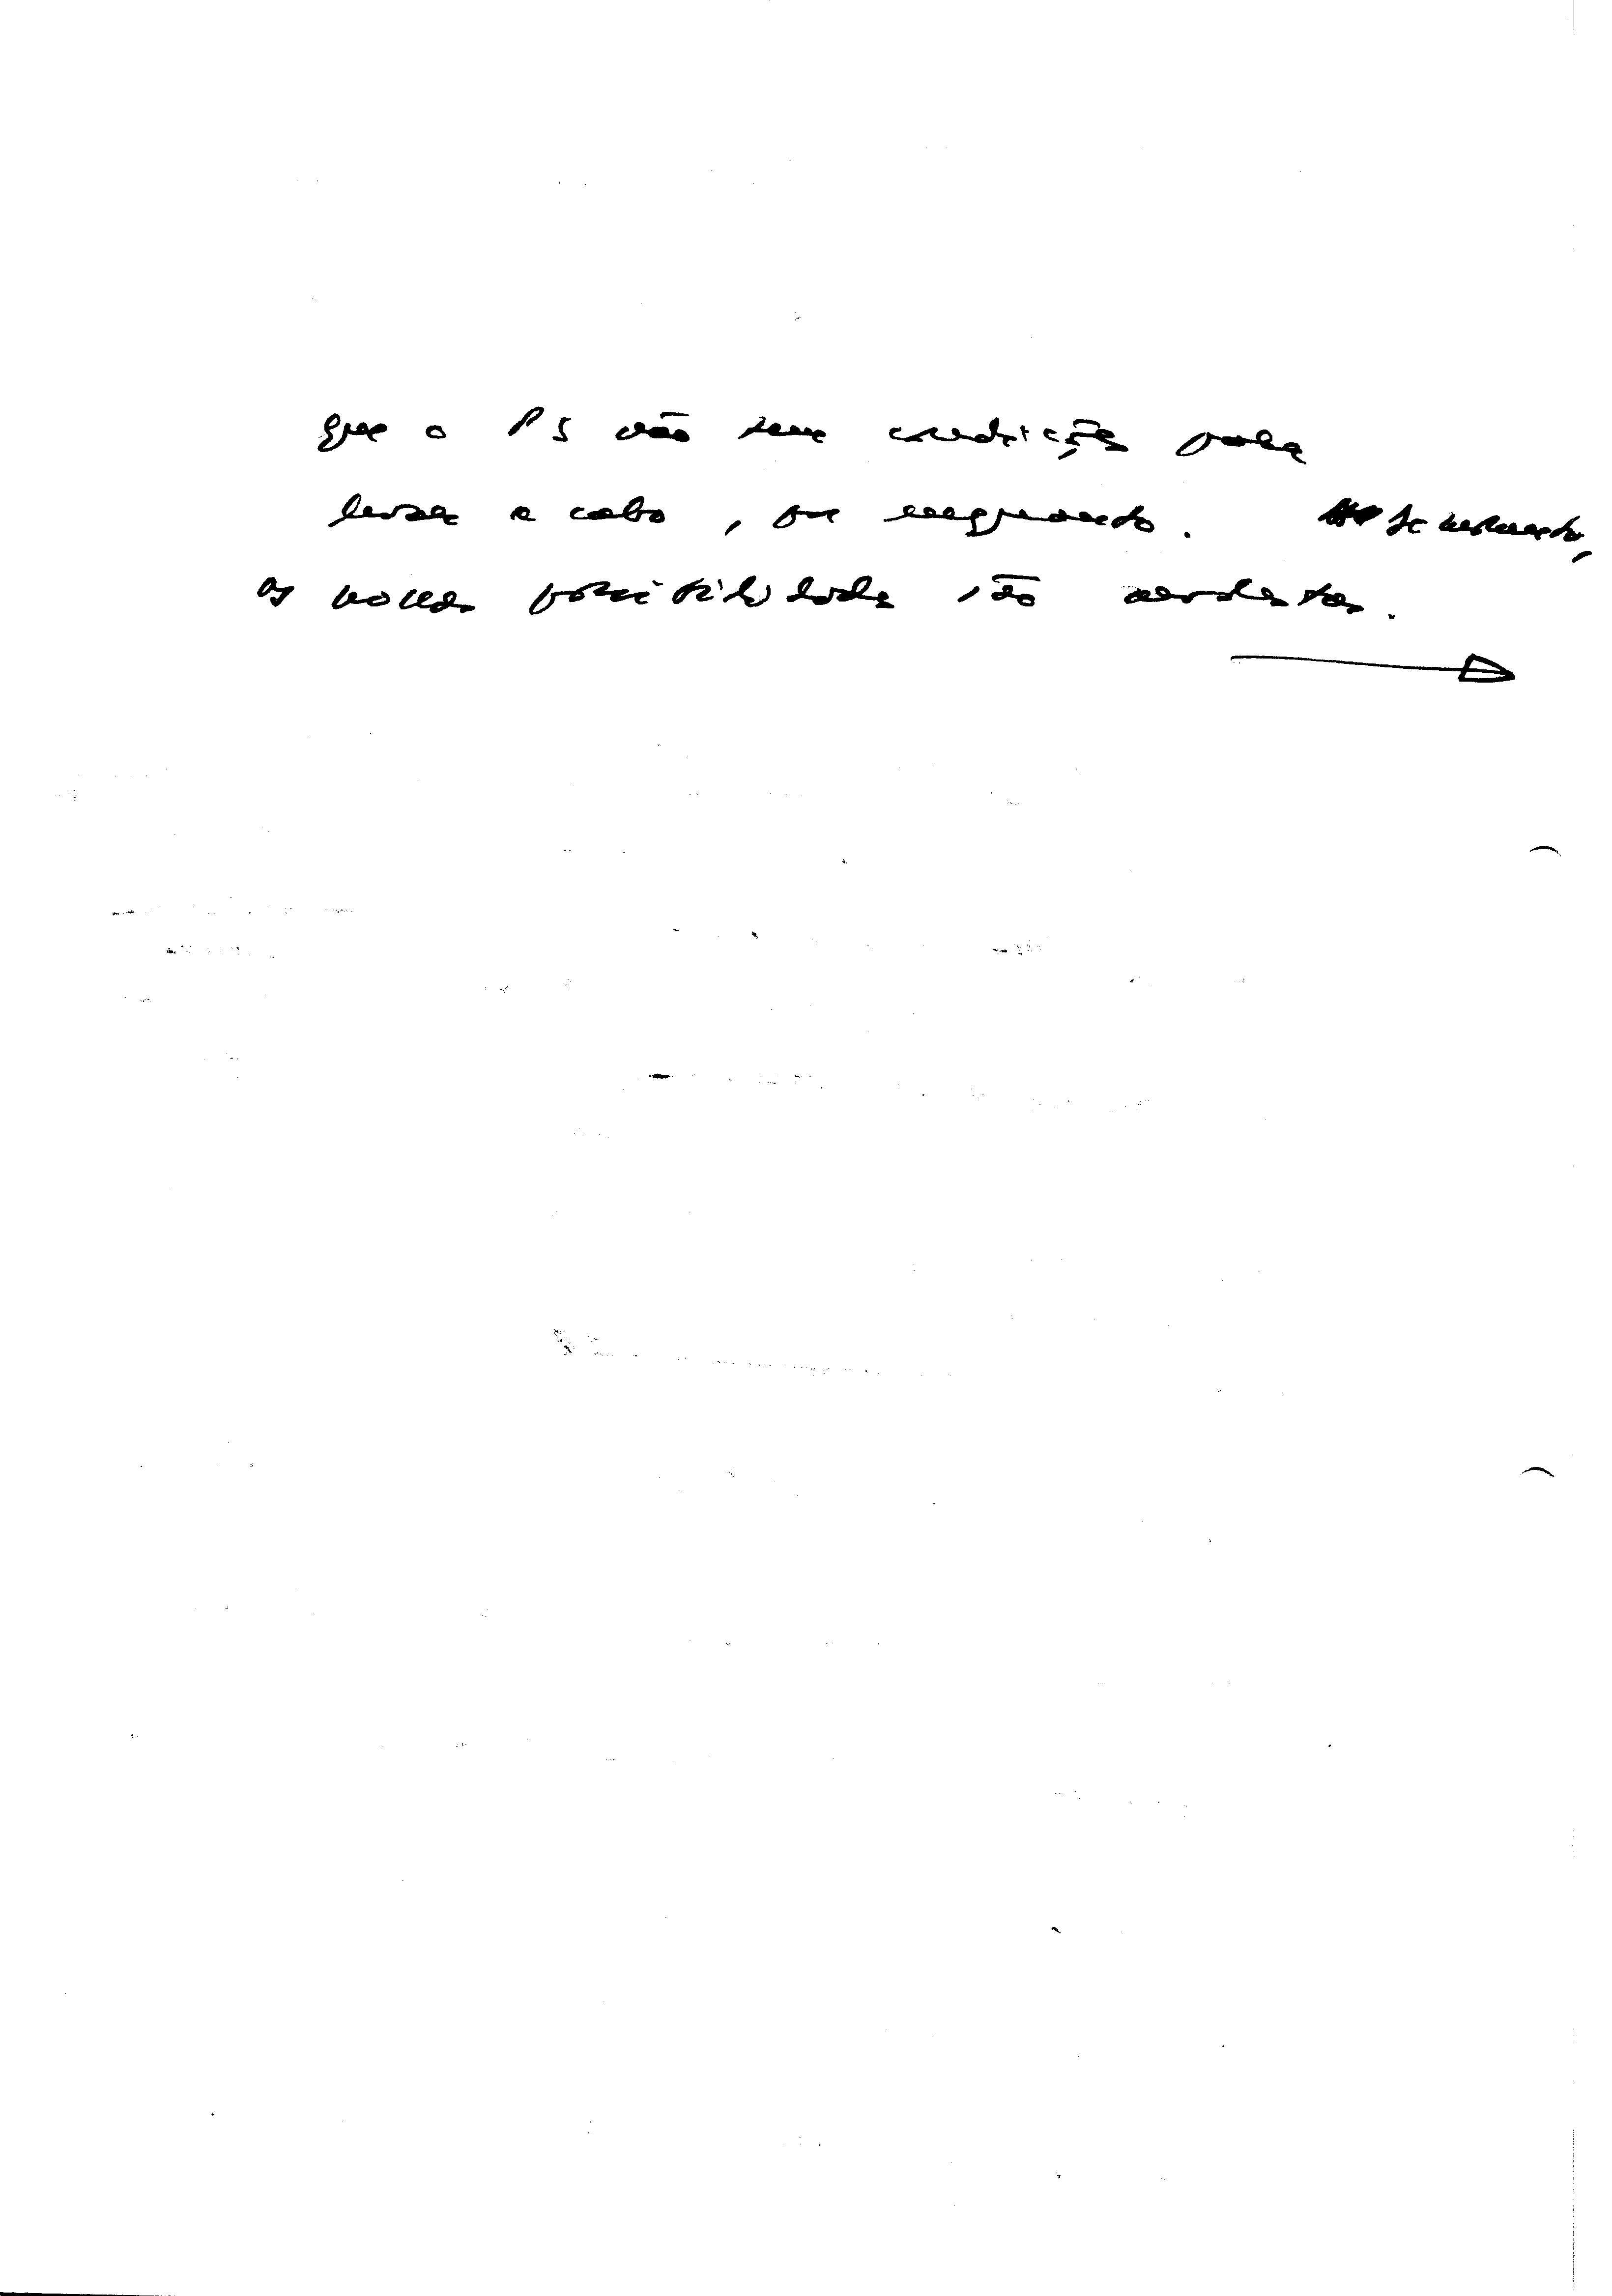 que o PS não tem condições para
levar a cabo, por enquanto. No entanto,
as nossas possibilidades são